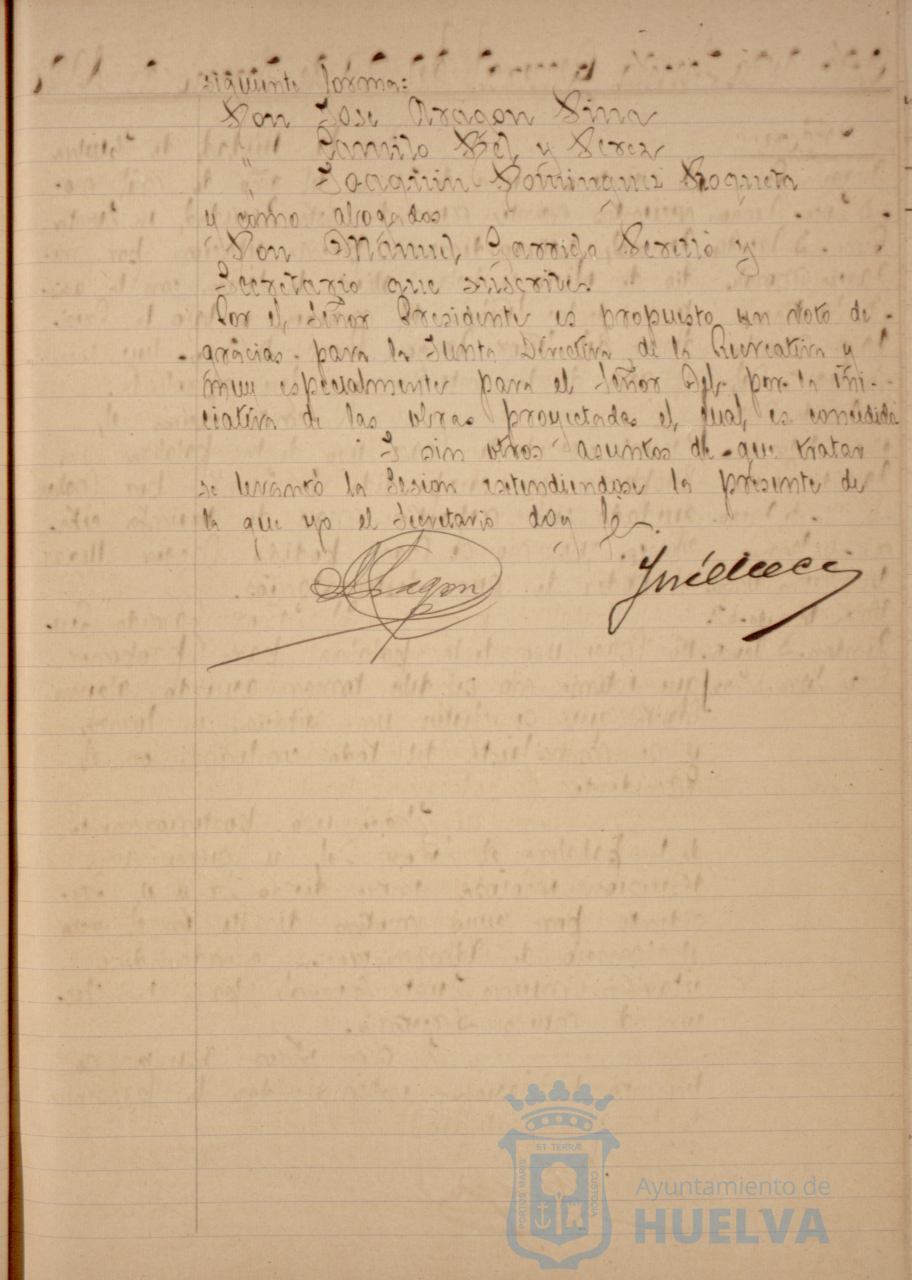 siguiente forma:
Don José Aragon Pina
" Camilo Bel y Perez
" Joaquin Dominguez Roqueta
y como abogados
Don Manuel Garrido Perelló y
Secretario que suscribe.
Por el Señor Presidente es propuesto un voto de
gracias para la Junta Directiva de la Recreativa y
muy especialmente para el Señor Bel por la ini-
ciativa de las obras proyectadas el cual es concedido
Y sin otros asuntos de que tratar
se levantó la Sesion extendiendose la presente de
la que yo el Secretario doy fe.
Aragon
PORTUS MARIS
ET TERRÆ
CUSTODIA
Ayuntamiento de
HUELVA